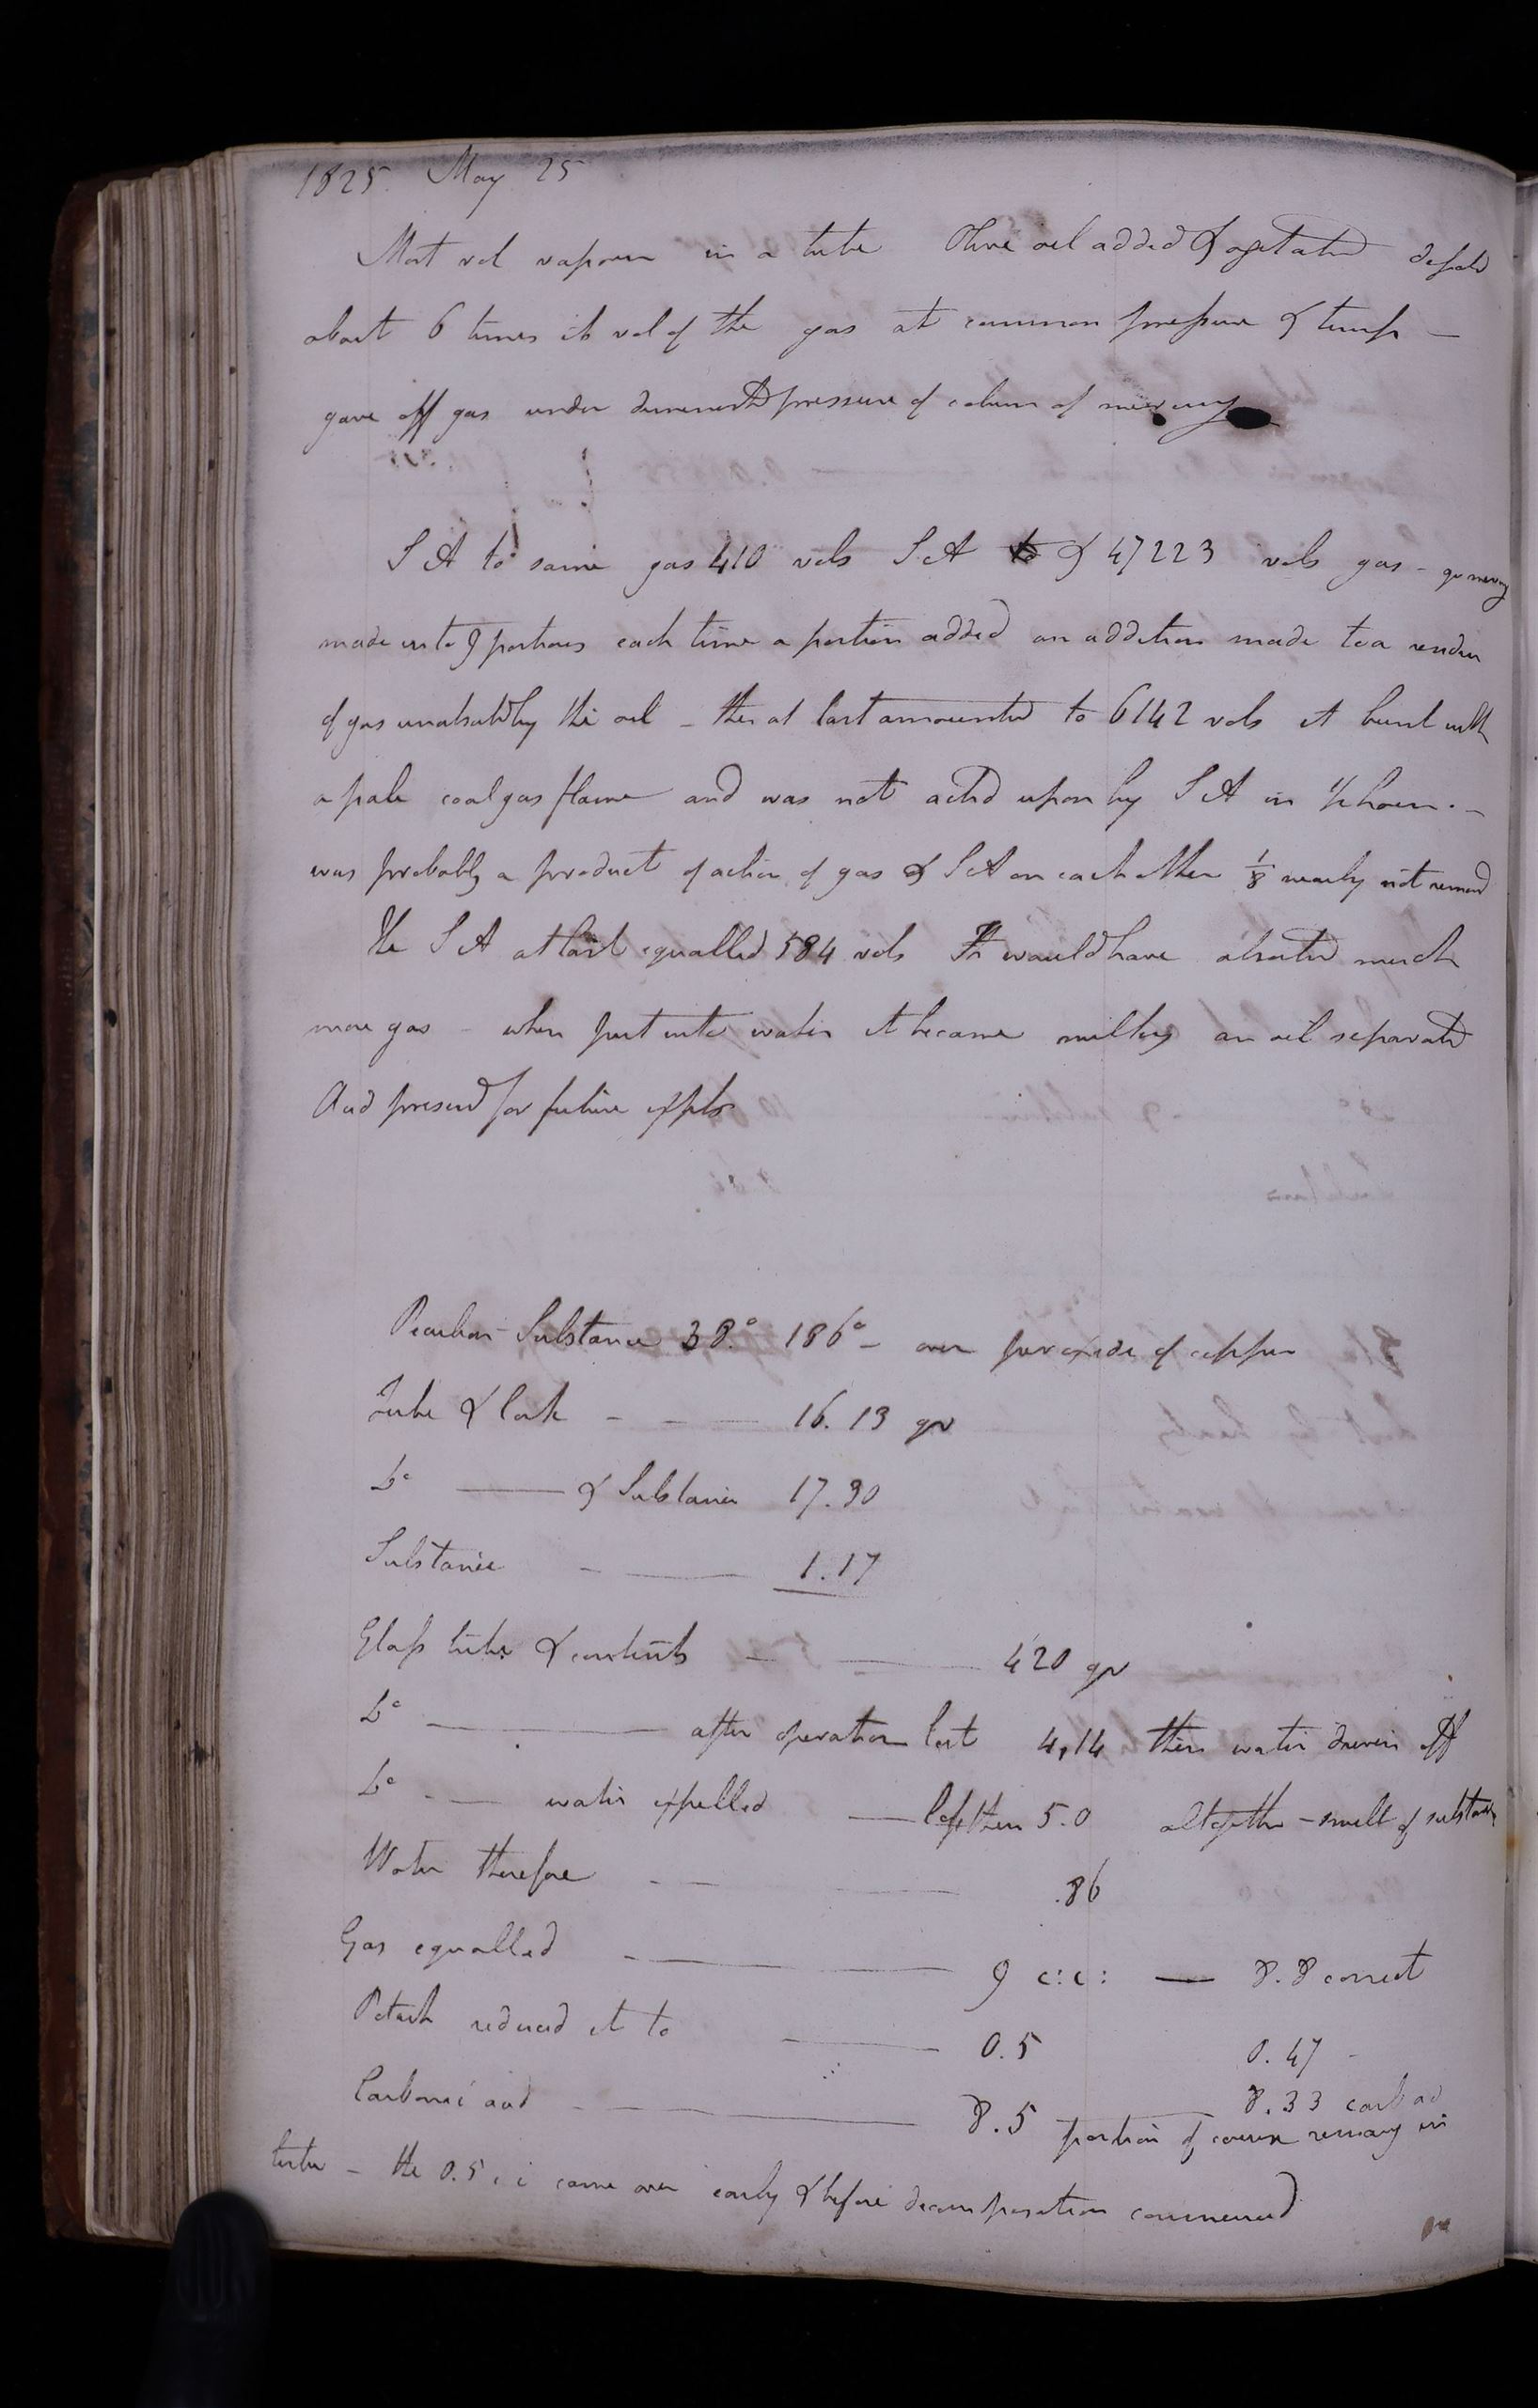 1825. May 25
Most vol vapour in a tube Olive oil added & agitated dissold
about 6 times its vol of the gas at common pressure & temp —
gave off gas under diminishd pressure of column of mercury
S A to same gas 410 vols S.A & 47223 vols gas -
made into 9 portions each time a portion added an addition made to a residm
of gas unabsorbd by the oil - this at last amounted to 6142 vols it burnt with
a pale coal gas flame and was not acted upon by S A in 1/2 hour. -
was probably a product of action of gas & S A on each other 1/8 nearly not removd
The S A at last equalled 584 vols It would have absorbed much
more gas - when put into water it became milky an oil separated
And preservd for future expts
Peculiar Substance 38.° 186° - over peroxide of copper
Tube & Cork - - — 16.13 gr
Do —— & Substance 17.30
Substance - —— 1.17
Glass tube & contents - —— 420 gr
Do —— after operation lost 4,14 then water driven off
Do - — water expelled — less then 5.0 altogether - smelt of substance
Water therefore - - — .86
Gas equalled - —— 9 c:c: — 8.8 correct
Potash reduced it to —— 0.5 0.47 -
Carbonic acid - —— 8.5 8.33 carb ac
portion of course remaing in
tube - the 0.5 c i came over early & before decomposition commenced